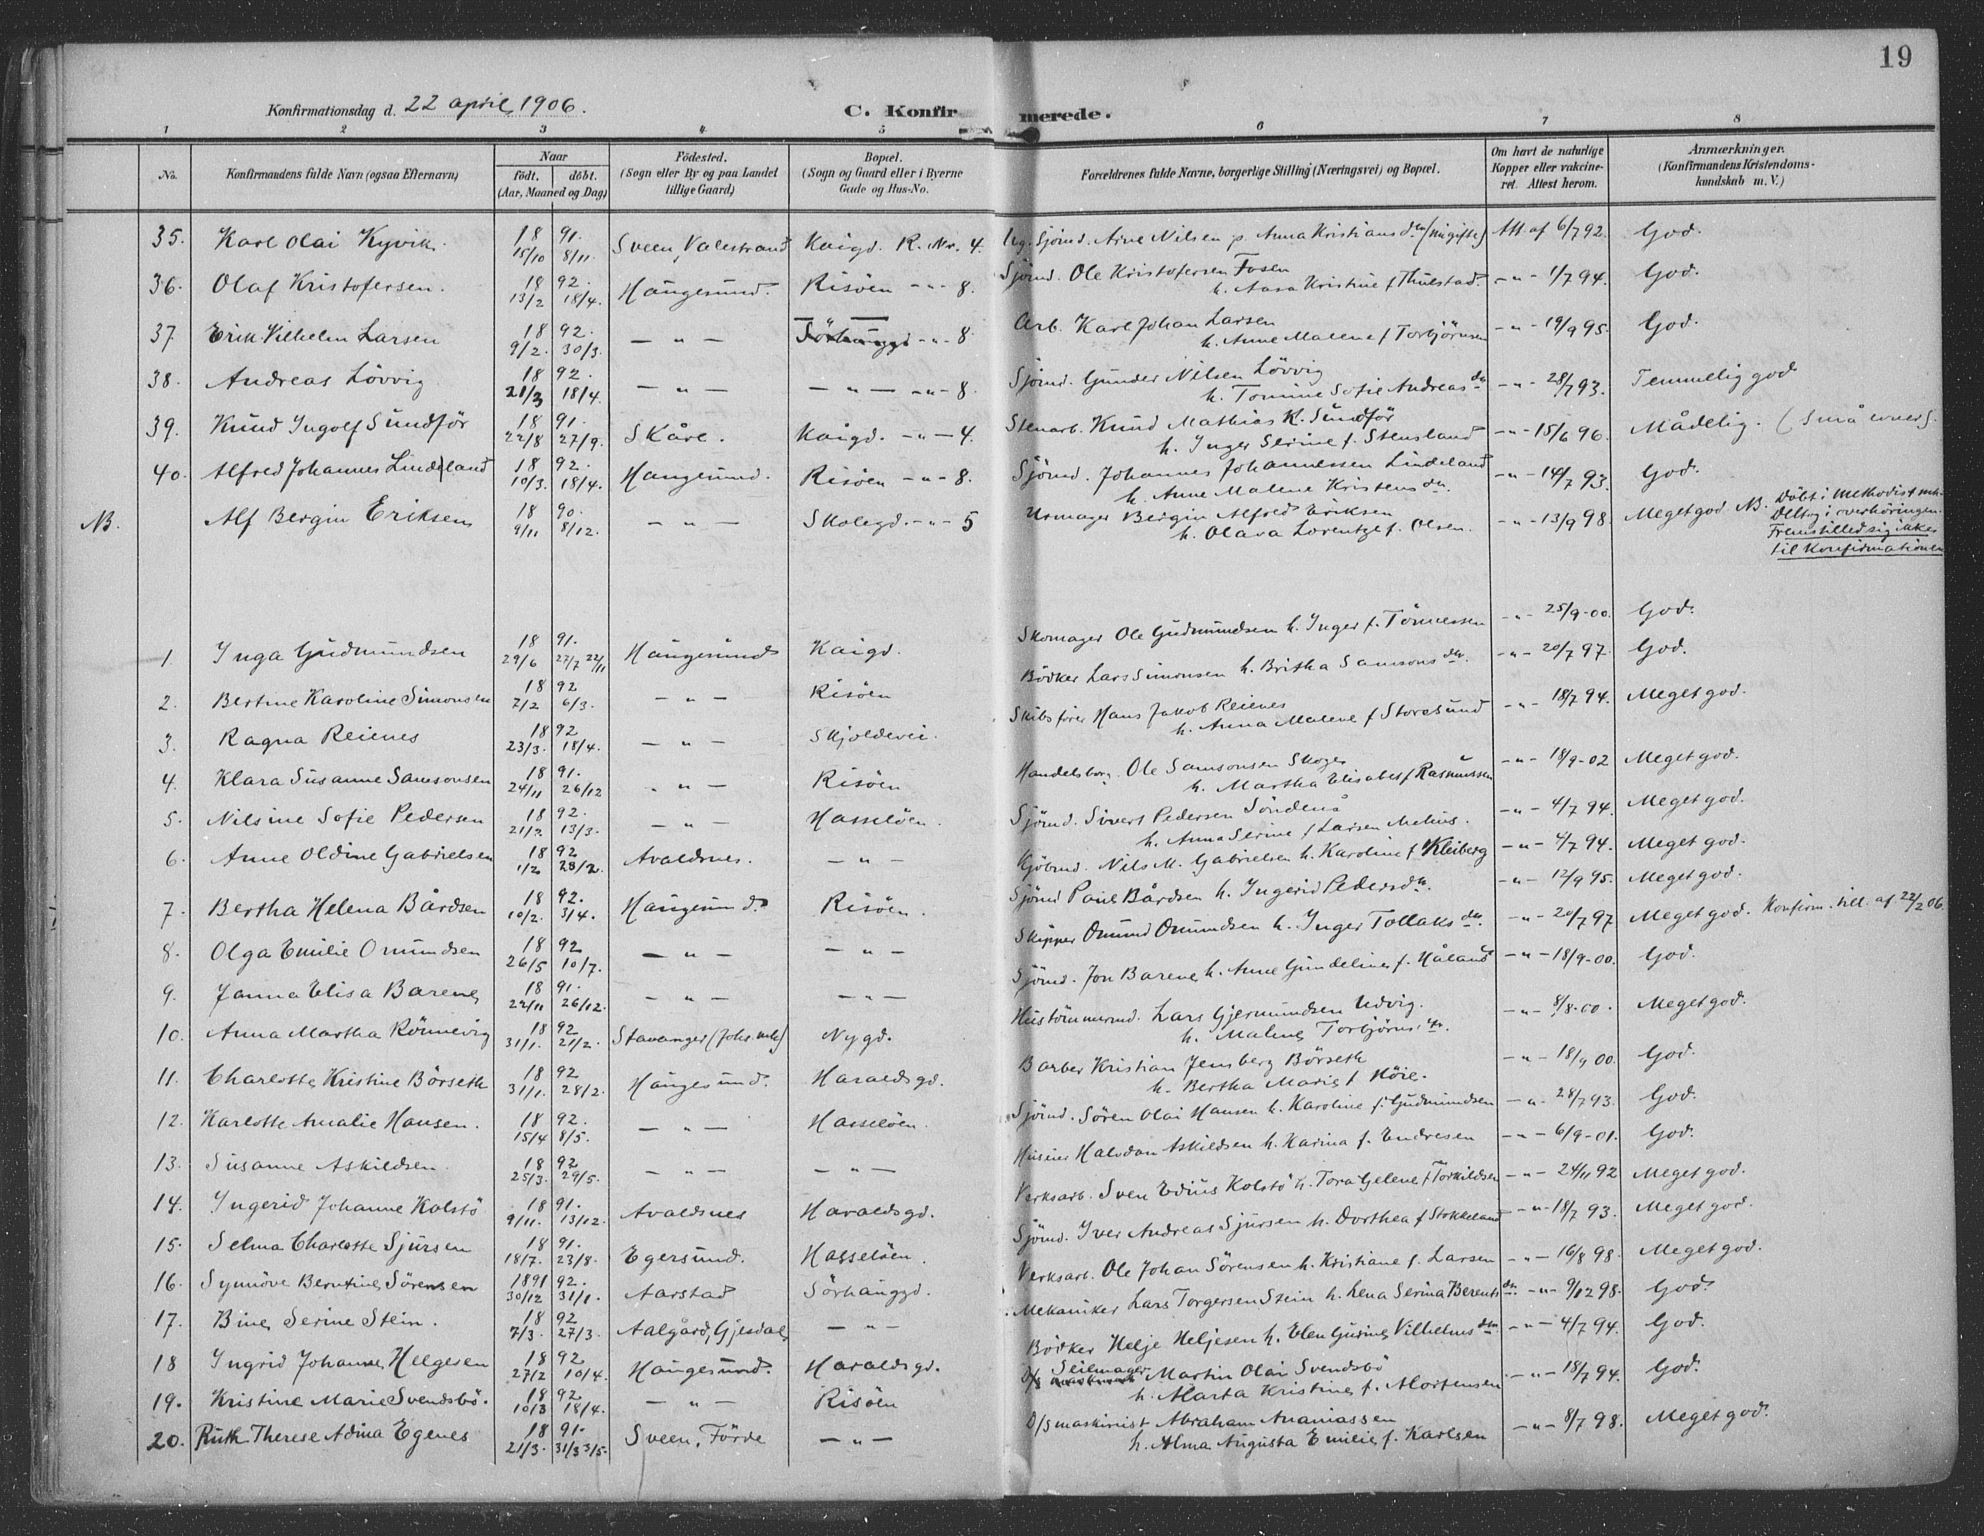 19
Konfirmationsdag d. 22 april 1906.
C. Konfirmerede.
1 2 3 4 5 6 7 8
No. Konfirmandens fulde Navn (ogsaa Efternavn) Naar födt. döbt. (Aar, Maaned og Dag) Födested. (Sogn eller By og paa Landet tillige Gaard) Bopæl. (Sogn og Gaard eller i Byerne Gade og Hus-No. Forældrenes fulde Navne, borgerlige Stilling (Næringsvei) og Bopæl. Om havt de naturlige Kopper eller vakcineret. Attest herom. Anmærkninger. (Konfirmandens Kristendomskundskab m. V.)
35. Karl Olai Kyvik. 18 15/10 91. 8/11. Sveen, Valestrand Kaigd. R. Nr. 4. Ug. Sjömd. Arne Nilsen p. Anna Kristiansdtr (ungifte) Att. af 6/7 92. God.
36. Olaf Kristofersen. 18 13/2 92. 18/4. Haugesund. Risöen -"- 8. Sjömd. Ole Kristofersen Fosen
h. Aasa Kristine f Thuestad. -"- 1/7 94. God.
37. Erik Vilhelm Larsen 18 9/2. 92. 30/3. -"- -"- 8. Arb. Karl Johan Larsen
h. Anne Malene f Torbjörnsen -"- 19/9 95. God.
38. Andreas Lövvig 18 21/3 92. 18/4. -"- -"- -"- 8. Sjömd. Gunder Nilsen Lövvig
h. Tomine Sofie Andreasdtr -"- 28/7 93. Temmelig god
39. Knud Ingolf Sundför 18 22/8 91. 27/9. Skåre. Kaigd. -"- 4. Stenarb. Knud Mathias K. Sundför
h. Inger Serine f. Stensland -"- 15/6 96. Mådelig. (Små evner).
40. Alfred Johannes Lindeland 18 10/3. 92. 18/4. Haugesund. Risöen -"- 8. Sjömd. Johannes Johannessen Lindeland
h. Anne Malene Kristensdtr. -"- 14/7 93. God.
NB. Alf Bergin Eriksen 18 9/11 90. 8/12. -"- Skolegd. -"- 5 Urmager Bergin Alfred Eriksen
h. Olava Lorentze f. Olsen. -"- 13/9 98. Meget god NB. Döbt i Methodistmh.
Deltog i overhöringen.
Fremstilled sig ikke
til Konfirmationen
1. Inga Gudmundsen 18 29/6 91. 27/7 22/11 Haugesund Kaigd. Skomager Ole Gudmundsen h. Inger f. Tönnessen -"- 25/9-00. God.
2. Bertine Karoline Simonsen 18 7/2 92 6/3. -"- Risöen Bödker Lars Simonsen h. Britha Samsonsdtr. -"- 20/7 97. God.
3. Ragna Reienes 18 23/3. 92 18/4. -"- Skjoldevei. Skibsförer Hans Jakob Reienes
h. Anna Malene f Storesund -"- 18/7 94. Meget god.
4. Klara Susanne Samsonsen 18 24/11 91. 26/12 -"- Risöen Handelsborg. Ole Samsonsen Skoge
h. Martha Elisabet f Rasmussen -"- 18/9-02 Meget god.
5. Nilsine Sofie Pedersen 18 21/2 92. 13/3. -"- Hasselöen. Sjömd. Sivert Pedersen Söndenå
h. Anna Serine f Larsen Mehus. -"- 4/7 94. Meget god.
6. Anne Oldine Gabrielsen 18 1/2 92 28/2. Avaldsnes. -"- Kjöbmd. Nils M. Gabrielsen h. Karoline f Kleiberg -"- 4/7 94. Meget god.
7. Bertha Helena Bårdsen 18 10/2. 92. 3/4. Haugesund. Risöen. Sjömd Paul Bårdsen h. Ingerid Pedersdtr. -"- 12/9 95. Meget god.
8. Olga Emilie Omundsen 18 26/5 92 10/7. -"- -"- Skipper Omund Omundsen h. Inger Tollaksdtr. -"- 20/7 97 Meget god. Konfirm. till. af 22/2 06.
9. Janna Elisa Barene 18 22/11 91. 26/12. -"- -"- Sjömd. Jon Barene h. Anne Gundeline f. Håland -"- 18/9-00. God.
10. Anna Martha Rönnevig 18 31/1. 92 21/2. Stavanger (Johs. mh.) Nygd. Hustömmermd. Lars Gjermundsen Udvig.
h. Malene Torbjörnsdtr. -"- 8/8-00. Meget god.
11. Charlotte Kristine Börseth 18 31/1. 92 28/2. Haugesund. Haraldsgd. Barber Kristian Jensberg Börseth
h. Bertha Marie f Höie. -"- 18/9 00. God.
12. Karlotte Amalie Hansen. 18 15/4 92. 8/5. -"- Hasselöen. Sjömd. Sören Olai Hansen h. Karoline f. Gudmundsen -"- 28/7 93. God.
13. Susanne Askildsen. 18 25/3. 92 29/5. -"- -"- Huseier Halvdan Askildsen h. Karina f. Endresen -"- 6/9-01. God.
14. Ingerid Johanne Kolstö 18 9/11. 91. 13/12. Avaldsnes Haraldsgd. Verksarb. Sven Edius Kolstö h. Tora Gelene f Torkildsen -"- 24/11 92 Meget god.
15. Selma Charlotte Sjursen 18 18/7. 91. 23/8. Egersund. Hasselöen. Sjömd. Iver Andreas Sjursen h. Dorthea f Stokkeland -"- 18/7 93. Meget god.
16. Synnöve Berntine Sörensen 1891 30/12 92. 31/1. Aarstad Sörhauggd. Verksarb. Ole Johan Sörensen h. Kristiane f. Larsen -"- 16/8 98. Meget god.
17. Bine Serine Stein. 18 7/3. 92 27/3. Aalgård, Gjesdal -"- Mekaniker Lars Torgersen Stein h. Lena Serina Berentsdtr. -"- 9/12 98. God.
18 Ingrid Johanne Helgesen 18 27/2 92 10/4. Haugesund. Haraldsgd. Bödker Helje Heljesen h. Elen Gurine Vilhelmsdtr -"- 4/7 94. God.
19. Kristine Marie Svendsbö. 18 10/3 92 18/4. -"- Risöen Seilmager Martin Olai Svendsbö
h. Marta Kristine f. Mortensen -"- 18/7 94. God.
20. Ruth Therese Adina Egenes 18 21/3. 91. 31/3 3/5. Sveen, Förde -"- D/S maskinist Abraham Ananiassen
h. Alma Augusta Emilie f. Karlsen -"- 8/7 98. Meget god.